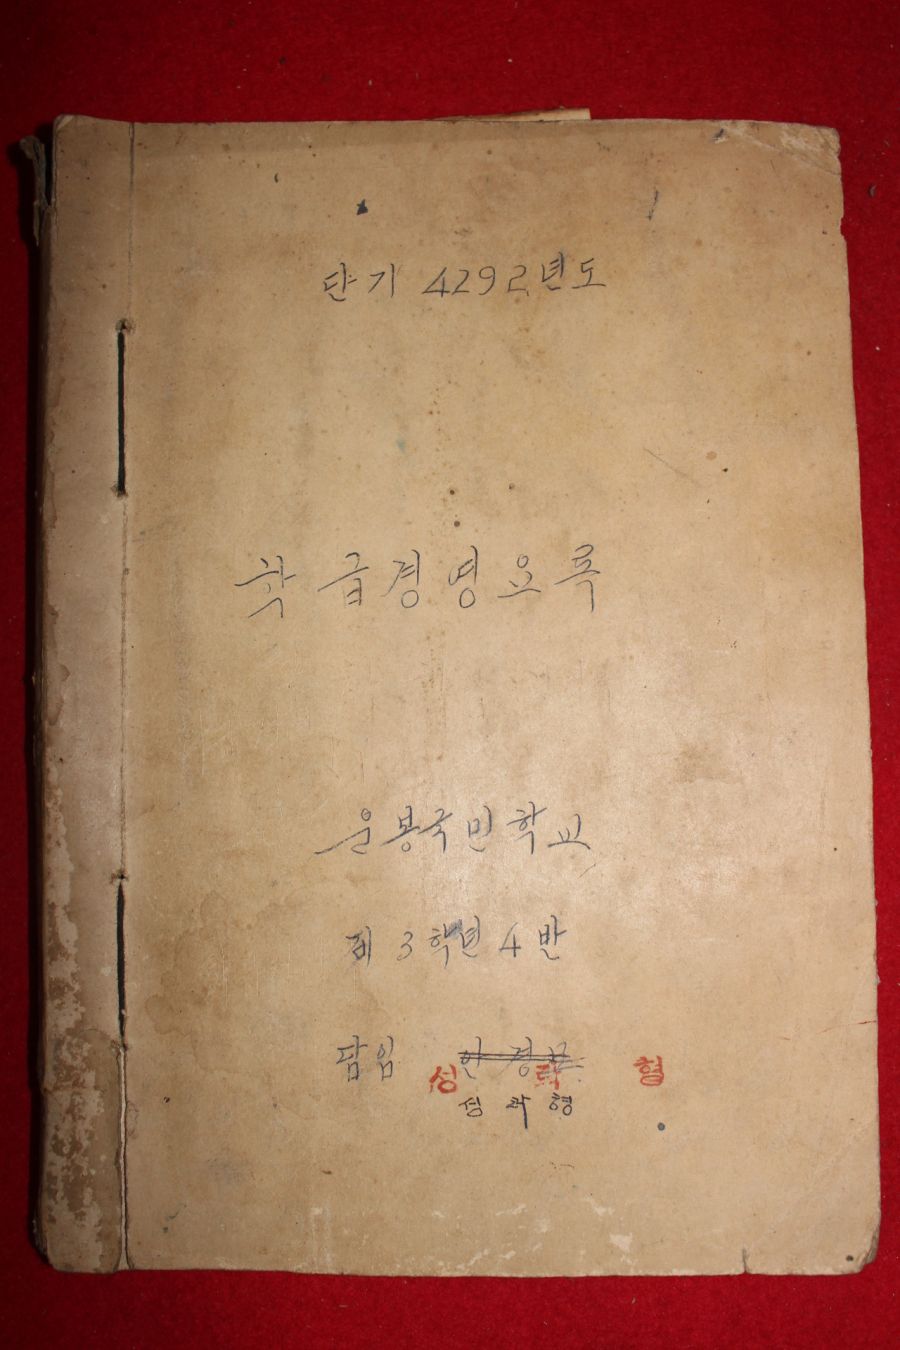 단기 4292년도
학급경영요록
운봉국민학교
제 3학년 4반
담임 안경
성 형
성 곽 형